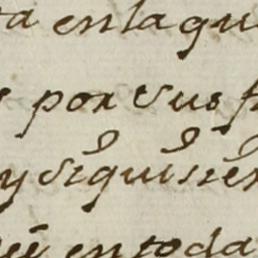 ta enlaqu
por sus f
y siquisier
en toda